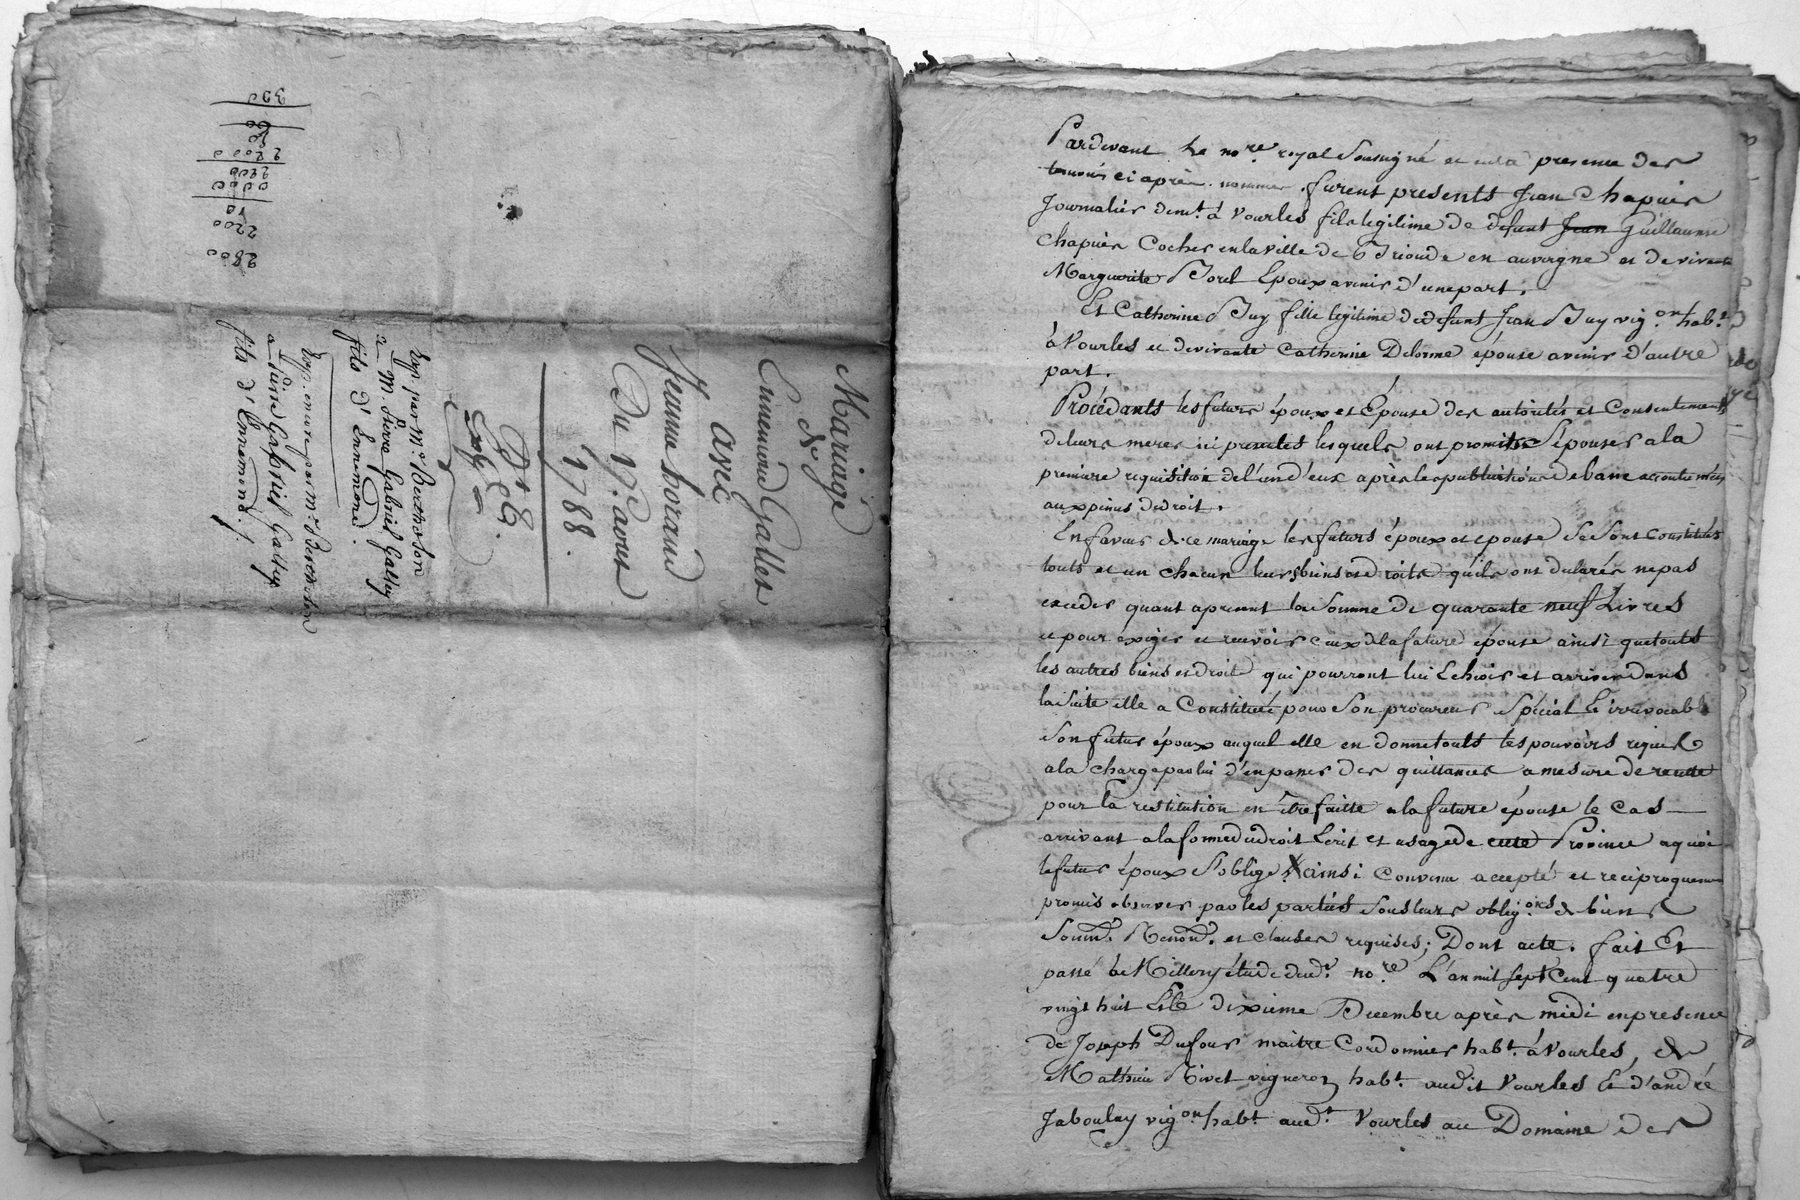 300
60
50
22000
2200
0000
10
2200
2800
Mariage
de
Ennemond Gallet
avec
Jeanne borand
Du 17e. aout
1788.
Expé
Exp. par Me. Bertholon
a M. Pierre Gabriel Galley
fils d'Ennemond.
Exp. encore par Me Bertholon
a Pierre Gabriel Galley
fils d'Ennemond.
Pardevant Le nore. royal Soussigné et en la presence des
temoins ci après nommés, furent presents Jean Chapuis
Journalier demt. à Vourles fils legitime de defunt Jean Guillaume
Chapuis Cocher en la ville de Brioude en auvergne et de vivante
Marguerite Borel Epoux avenir d'une part.
Et Catherine Buy fille legitime de defunt Jean Buy vigon. habt.
à Vourles et de vivante Catherine Delorme épouse avenir d'autre
part.
Procédants les futurs époux et Epouse des autorités et Consentements
de leurs meres ici presentes lesquels ont promis S'épouser a la
premiere requisition de l'un d'eux après les publications de bans accoutumés
aux peines de droit.
En faveur de ce mariage les futurs époux et épouse Se Sont Constitués
touts et un chacun leurs biens et droits qu'ils ont declarés ne pas
exceder quant apresent la Somme de quarante neuf Livres
et pour exiger et recevoir ceux de la future épouse ainsi que touts
les autres biens et droits qui pourront lui Echeoir et arriver dans
la Suite elle a Constitué pour Son procureur Spécial & irrevocable
Son futur époux auquel elle en donne touts les pouvoirs requis
a la charge par lui d'en passer des quittances a mesure de recette
pour la restitution en être faitte a la future épouse le Cas
arrivant a la forme du droit Ecrit et usage de cette Province a quoi
le futur époux S'oblige X ainsi Convenu accepté et reciproquement
promis observer par les parties Sous leurs obligons. de biens
Soum. Renon. et clauses requises; Dont acte. fait Et
passé à Millery étude dud. nore. L'an mil Sept Cent quatre
vingt huit & le dixieme Decembre après midi en presence
de Joseph Dufour maitre Cordonnier habt. à Vourles, de
Mathieu Rivet vigneron habt. audit Vourles & d'andré
Jaboulay vigon. habt. audt. Vourles au Domaine des